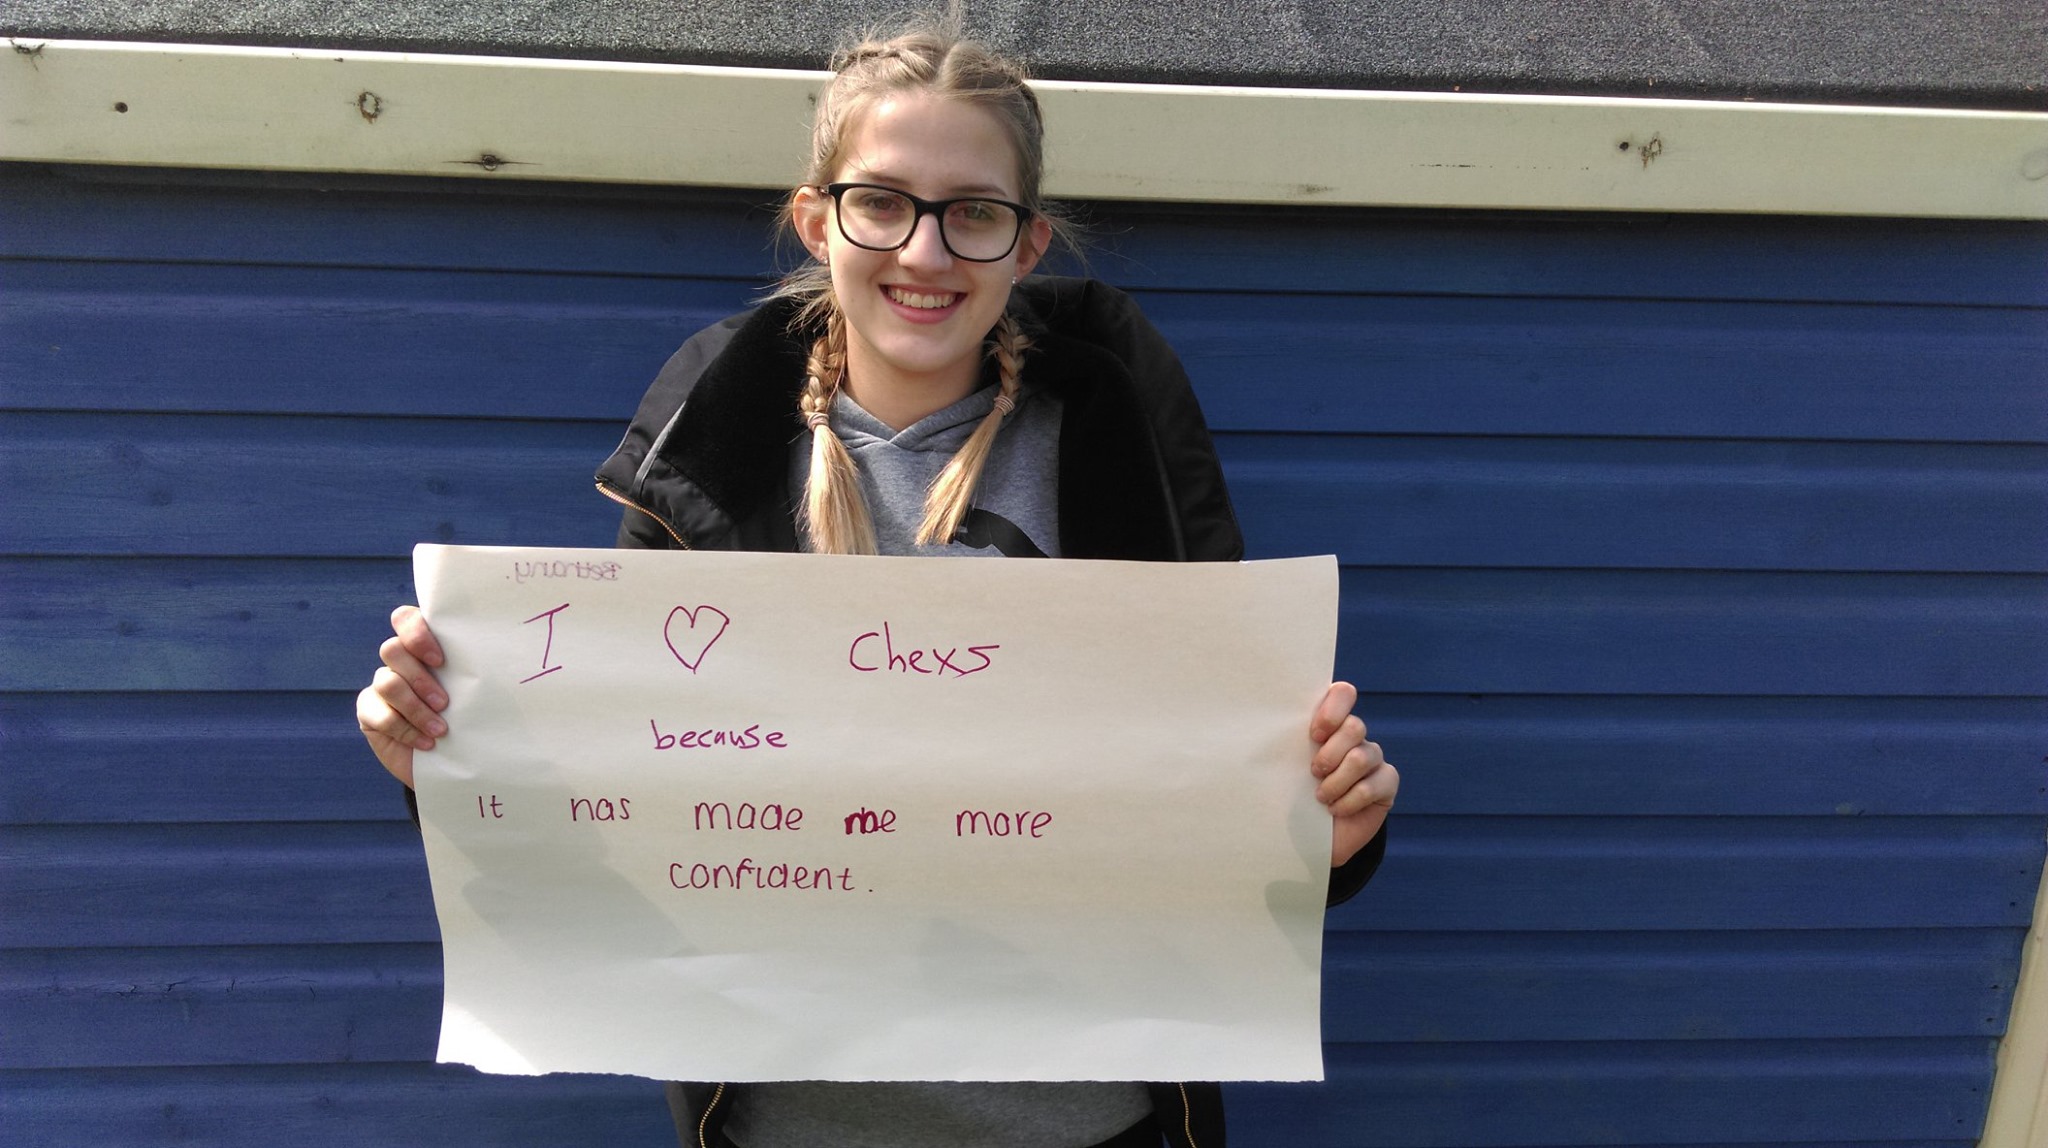 Bethany.
I ♡ Chexs
because
It has made me more
confident.